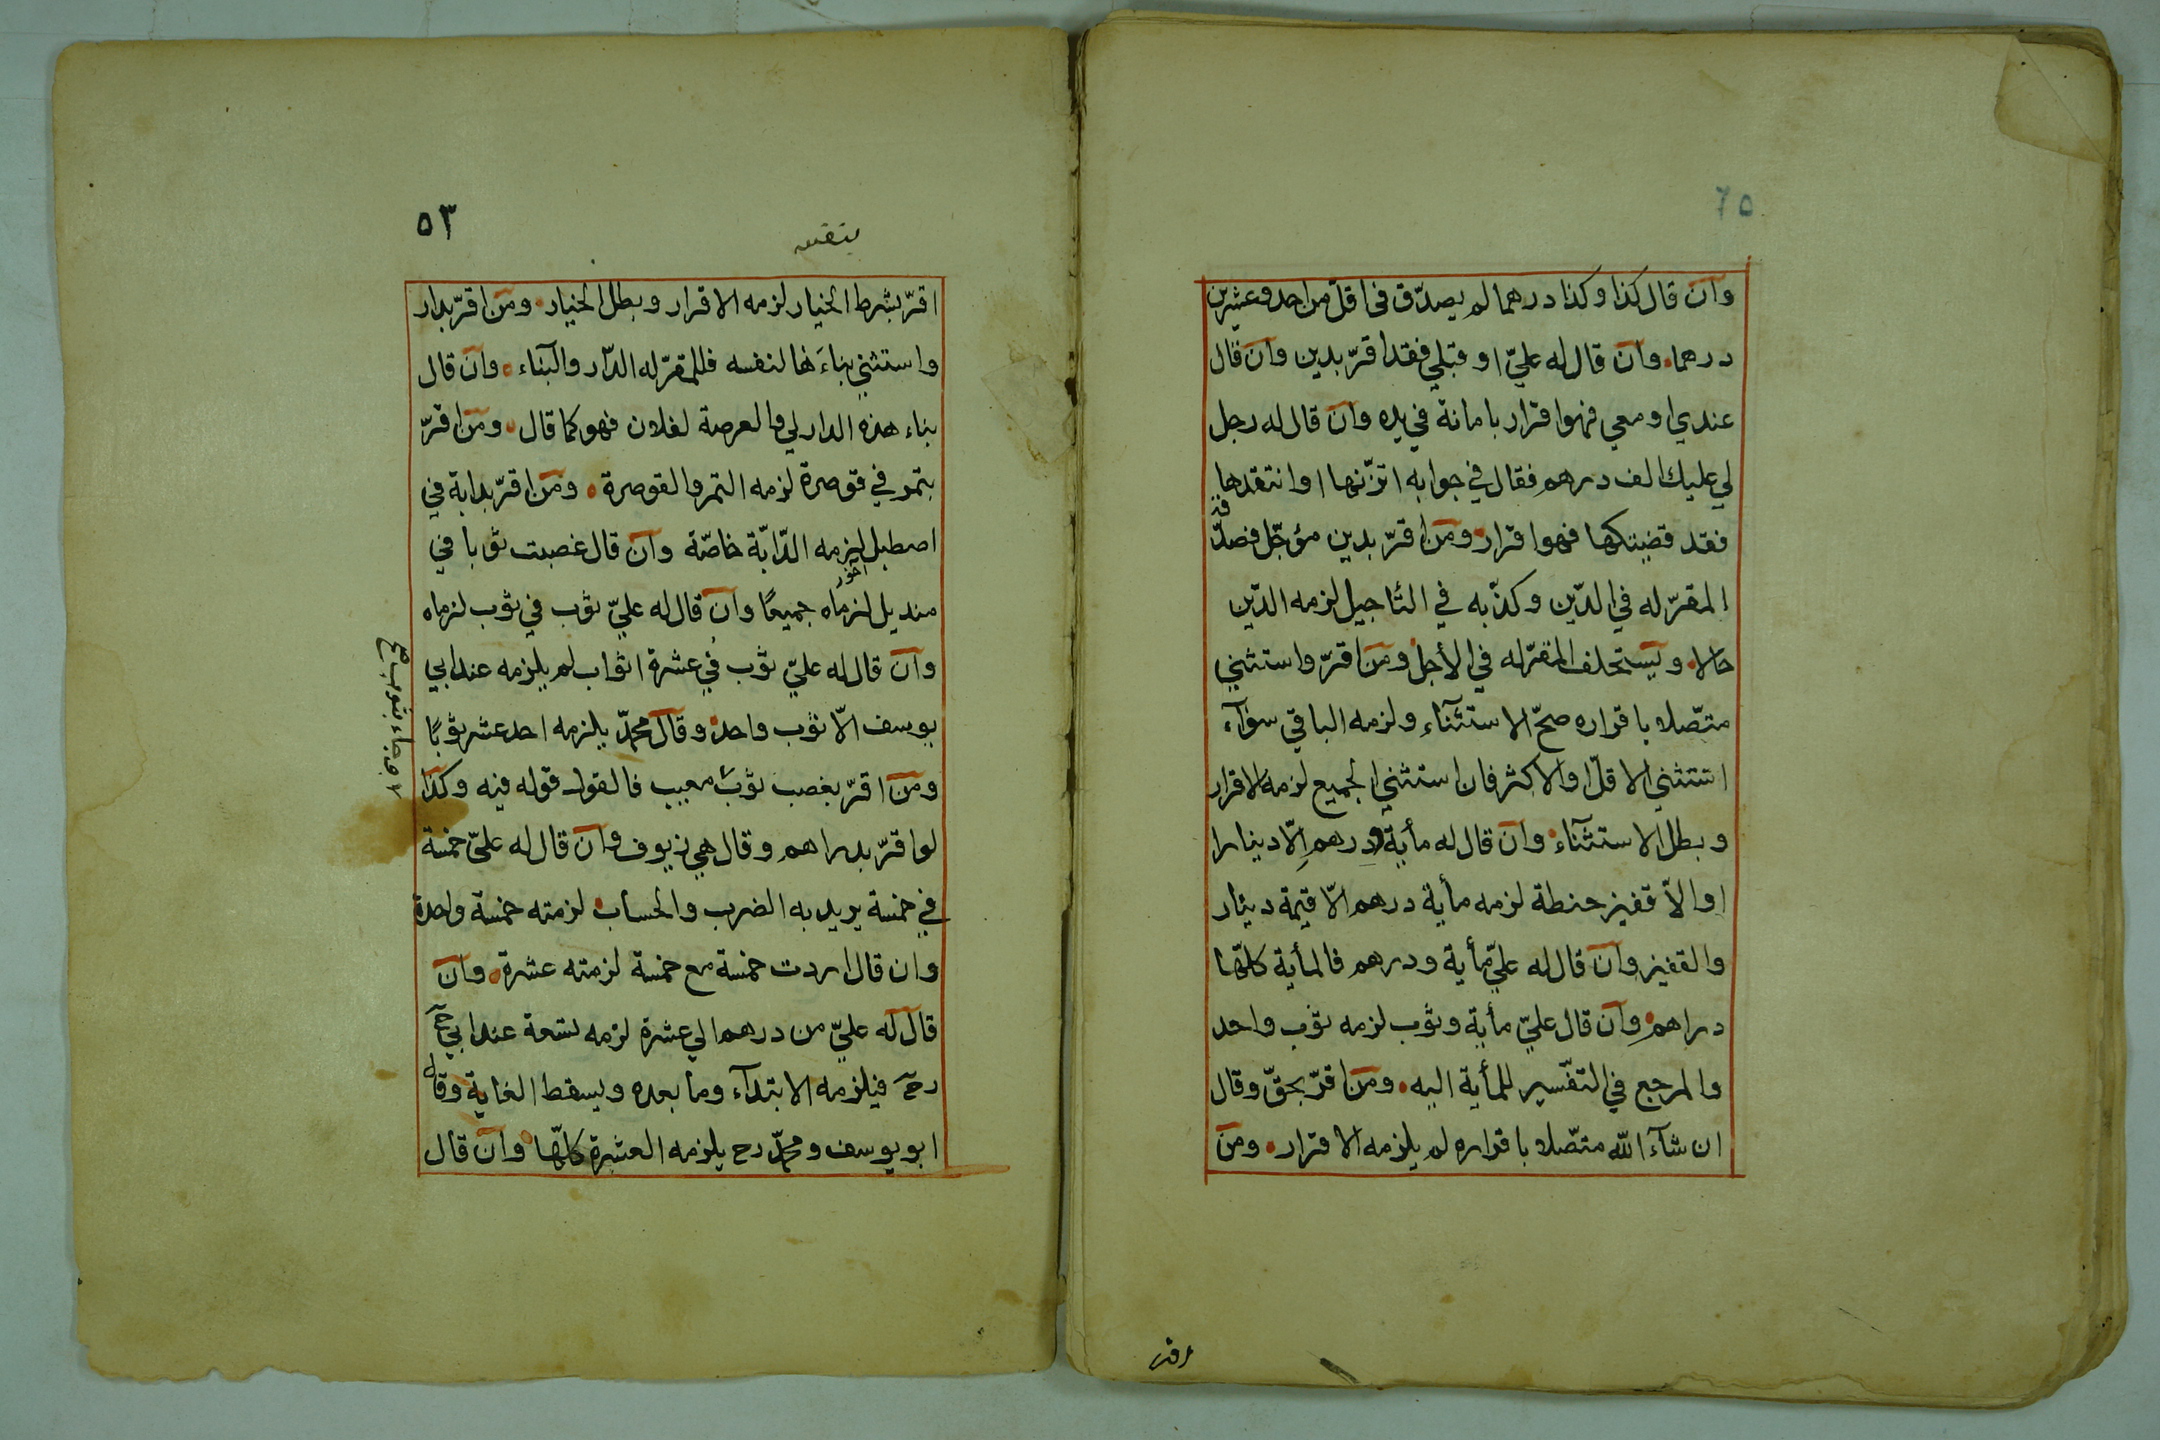 ٦٥
وان قال كذا وكذا درهما لم يصدّق في اقلّ من احد وعشرين
درهما وان قال له عليّ او قبلي فقد اقرّ بدين وان قال
عندي او معي فهو اقرار بامانة في يده وان قال له رجل
لي عليك الف درهم فقال في جوابه اتزنها او انتقدها
فقد قضيتكها فهو اقرار ومن اقرّ بدين مؤجّل فصدّقه
المقرّ له في الدّين وكذّبه في التاجيل لزمه الدّين
حالا ويستحلف المقرّ له في الأجل ومن اقرّ واستثني
متّصلا باقراره صحّ الاستثناء ولزمه الباقي سوآء
استثني الاقلّ او الاكثر فان استثني الجميع لزمه الاقرار
وبطل الاستثناء وان قال له مأية درهم إلّا دينارا
او الاّ قفيز حنطة لزمه مأية درهم الّا قيمة دينار
والقفيز وان قال له عليّ مأية ودرهم فالمأية كلّها
دراهم وان قال عليّ مأية وثوب لزمه ثوب واحد
والمرجع في التفسير للمأية اليه ومن اقرّ بحقّ وقال
ان شآء الله متصّلا باقراره لم يلزمه الاقرار ومن
اقر
٥٣
اقرّ بشرط الخيار لزمه الاقرار وبطل الخيار ومن اقرّ بدار
واستثني بناءَها لنفسه فللمقرّ له الدّار والبناء وان قال
بناء هذه الدار لي والعرصة لفلان فهو كما قال ومن اقرّ
بتمر في قوصرة لزمه التمر والقوصرة ومن اقرّ بدابة في
اصطبل لزمه الدّابّة خاصّة وان قال غصبت ثوبا في
منديل لزماه جميعًا وان قال له عليّ ثوب في ثوب لزماه
وان قال له عليّ ثوب في عشرة اثواب لم يلزمه عند ابي
يوسف الاّ ثوب واحد وقال محمدّ يلزمه احد عشر ثوبًا
ومن اقرّ بغصب ثوب معيب فالقول قوله فيه وكذا
لو اقرّ بدراهم وقال هي زيوف وان قال له عليّ خمسة
في خمسة يريد به الضرب والحساب لزمته خمسة واحدة
وان قال اردت خمسة مع خمسة لزمته عشرة وان
قال له عليّ من درهم الي عشرة لزمه تسعة عند ابي ح
رح فيلزمه الابتدآء وما بعده ويسقط الغاية وقال
ابو يوسف ومحمدّ رح يلزمه العشرة كلّها وان قال
وجاء بثوب صح